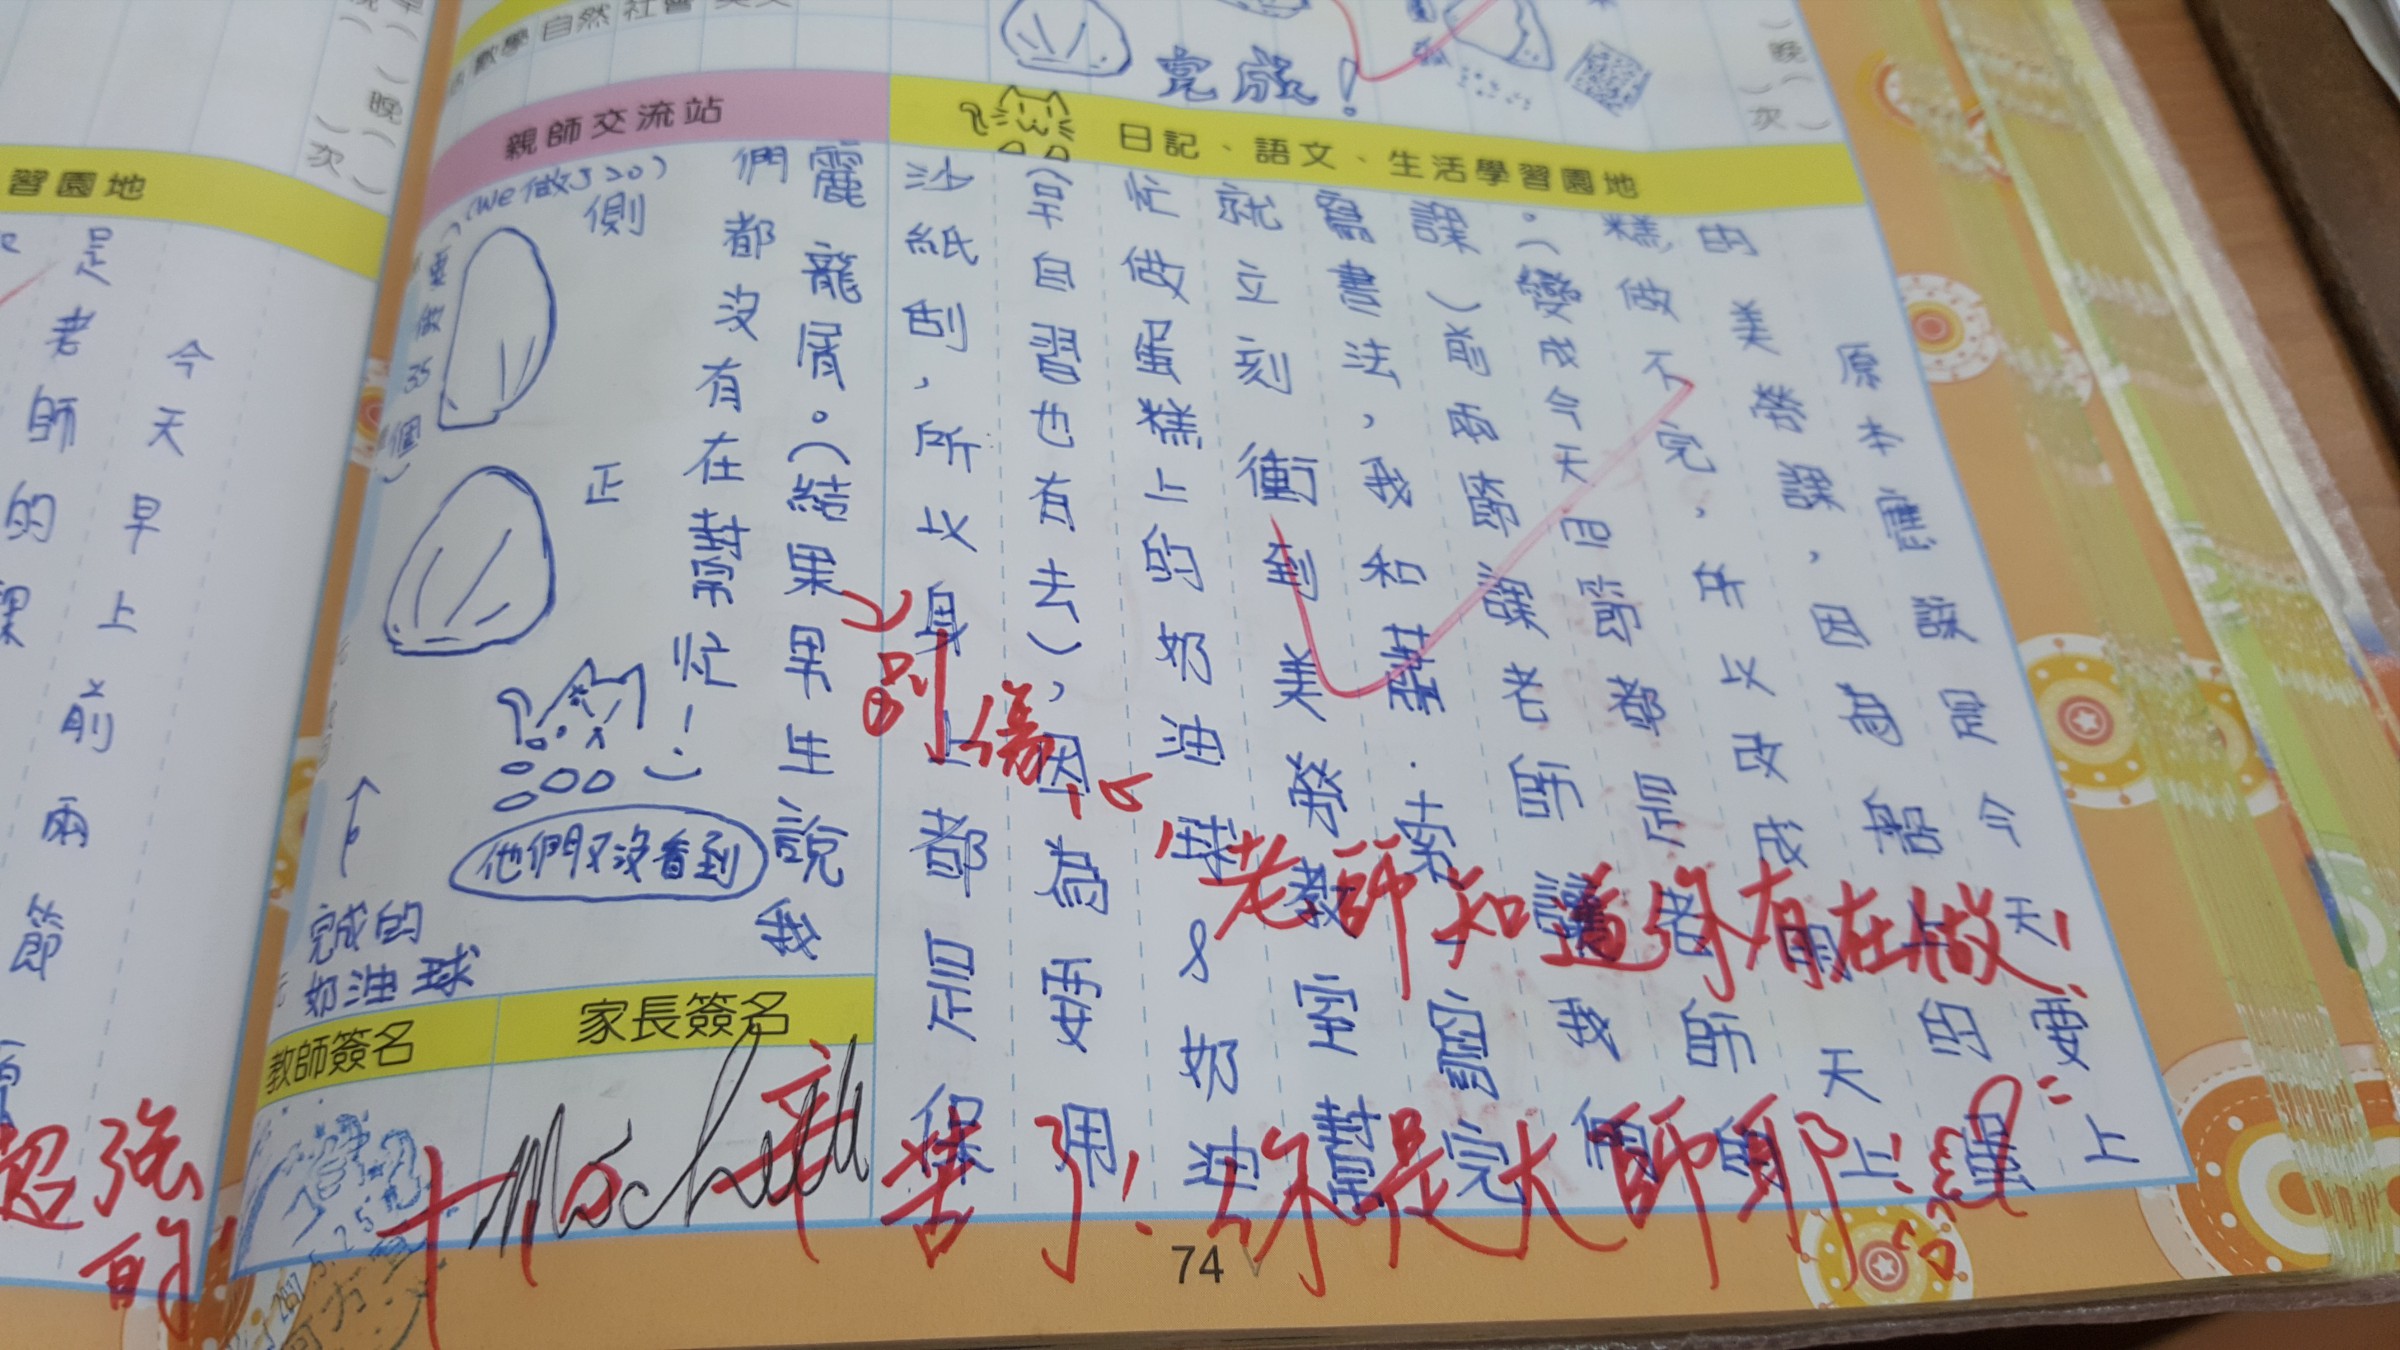 數學 自然 社會
完成！
(晚)
(次)
親師交流站
日記、語文、生活學習園地
原本應該是今天要上
的美勞課，因為盤上的蛋
糕做不完，所以改成天上
。(變成今天四節都是老師的
課)前兩節課老師讓我們
寫書法，我和華．索一寫完
就立刻衝到美勞教室幫
忙做蛋糕上的奶油球&奶油
(早自習也有去)，因為要用
沙紙刮，所以身上都是保
麗龍屑。(結果男生說我
們都沒有在幫忙！
(We做了20)
側
正
他們又沒看到
完成的
奶油球
老師知道你有在做！
辛苦了！你是大師耶！
教師簽名
家長簽名
74
(晚)
(次)
習園地
今天早上前兩節
是老師的課
超強
的！